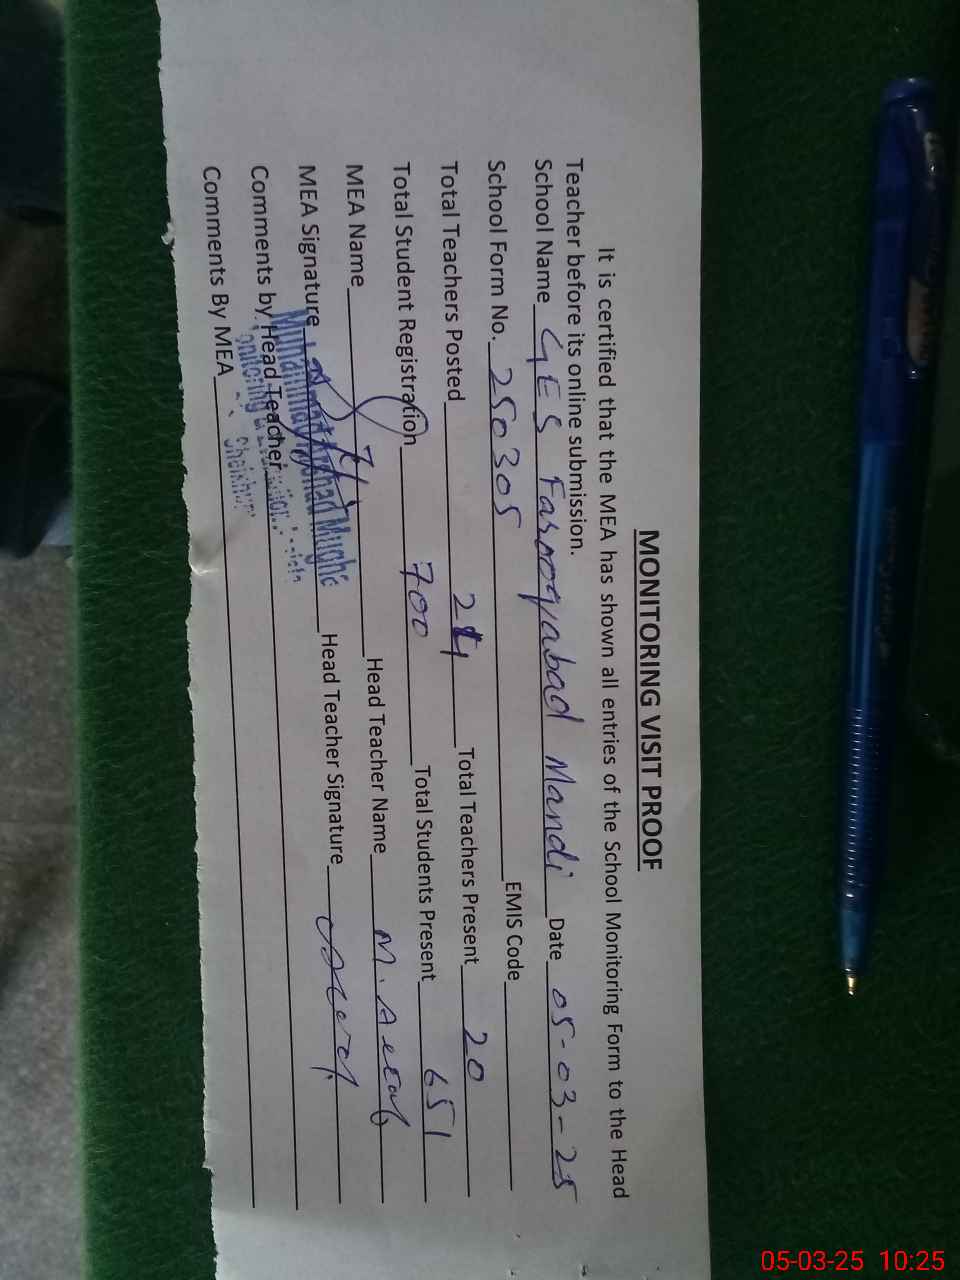 MONITORING VISIT PROOF
It is certified that the MEA has shown all entries of the School Monitoring Form to the Head
Teacher before its online submission.
School Name GES Farooqabad Mandi Date 05-03-25
School Form No. 250305 EMIS Code
Total Teachers Posted 24 Total Teachers Present 20
Total Student Registration 700 Total Students Present 651
MEA Name Head Teacher Name M.
MEA Signature Head Teacher Signature
Muhammad Arshad Mugha
Comments by Head Teacher
Monitoring &
Comments By MEA
Sheikhup
05-03-25 10:25